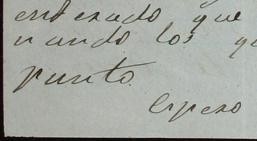 enterado que
nando los
punto.
Espero